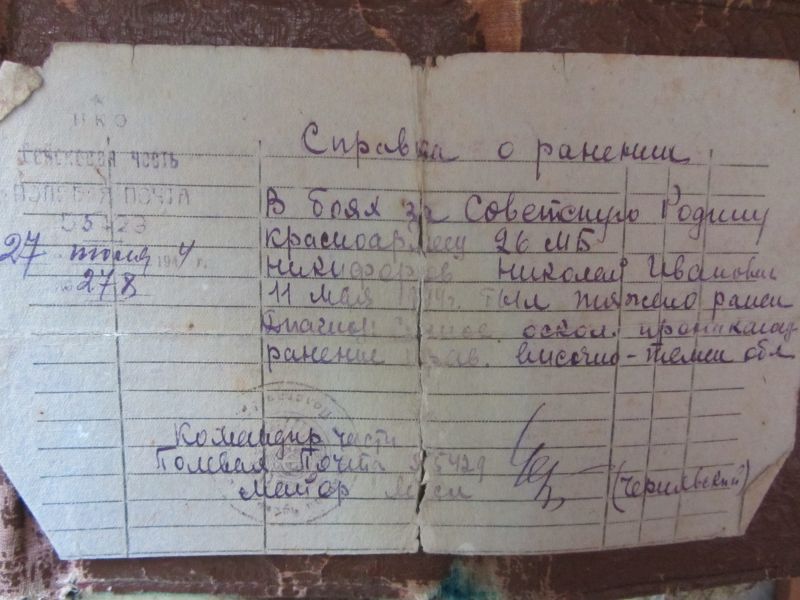 НКО
ВОЙСКОВАЯ ЧАСТЬ
ПОЛЕВАЯ ПОЧТА
27 июля 1944 г.
278
Справка о ранении
В боях за Советскую Родину
Красноармеец 26 МБ
Никифоров Николай Иванович
11 мая 1944г. был тяжело ранен
Диагноз оскол. проникающ
ранение прав. височно-темен обл
Командир части
Полевая Почта
Майор
(Чернявский)